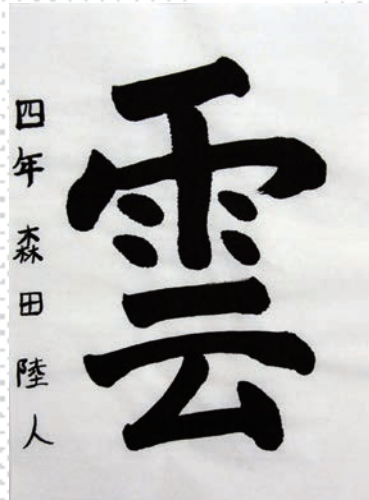 雲
四年 森田陸人